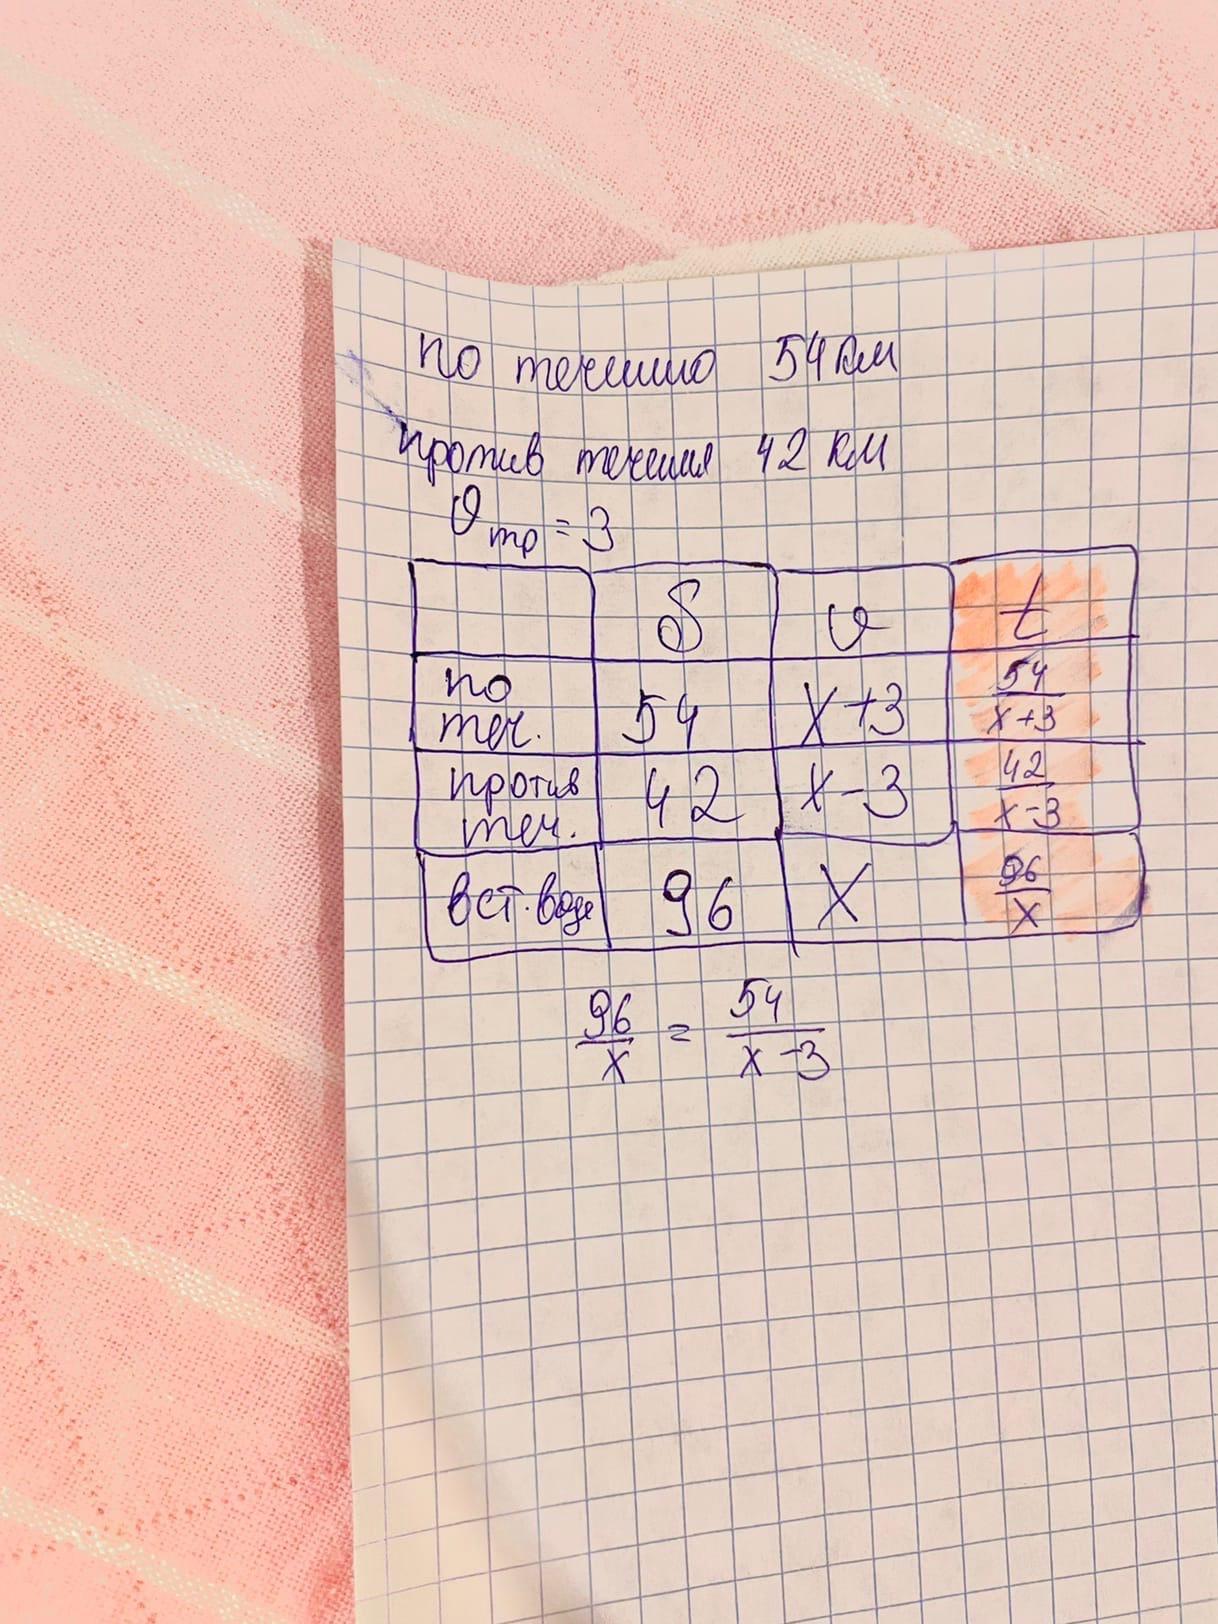 по течению 54 км
против течения 42 км
υтр = 3
S υ t
по теч. 54 x+3 54/x+3
против теч. 42 x-3 42/x-3
в ст. воде 96 x 96/x
96/x = 54/x-3